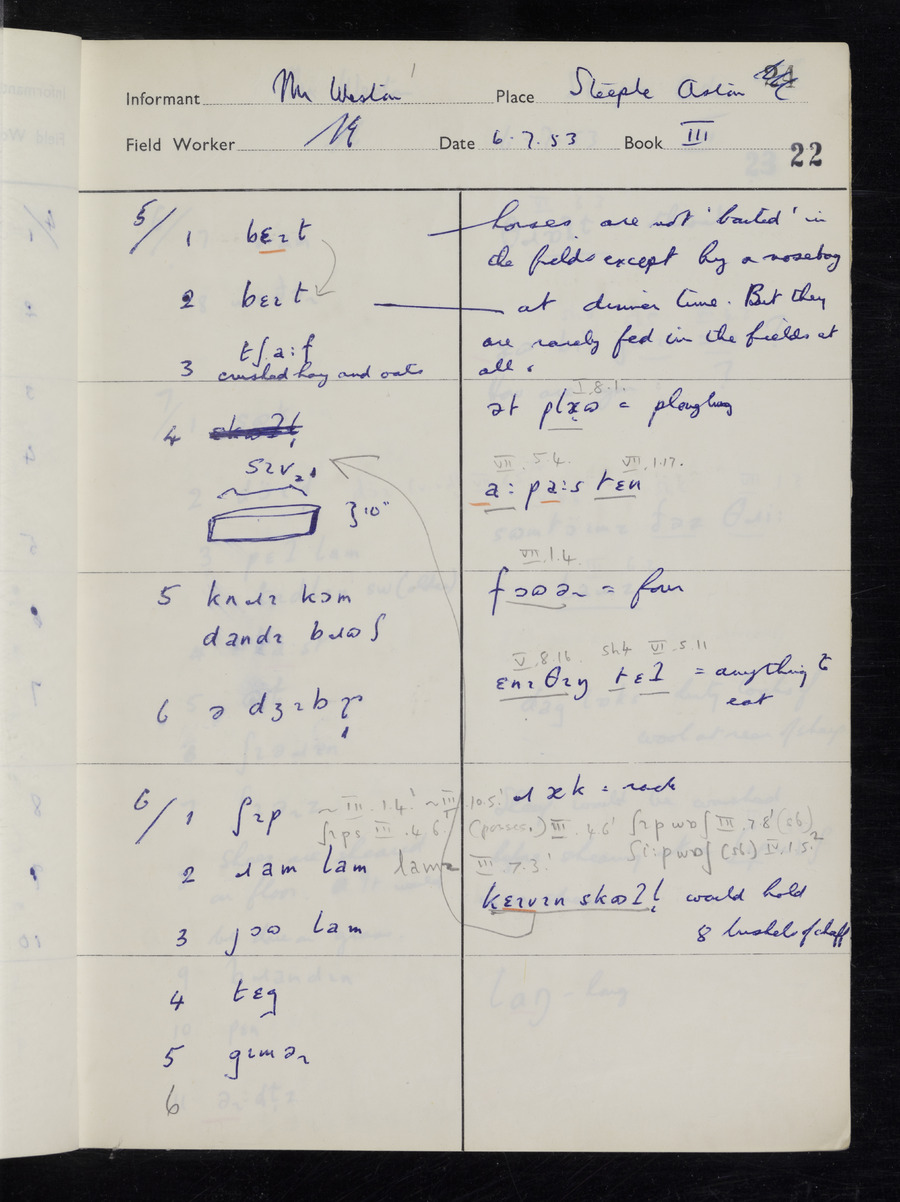 Informant Mr Weston Place Steeple Aston
Field Worker Date 6.7.53 Book III
22
5/ 1 bɛɪt
2 bɛɪt
3 tʃaːf
crushed hay and oats
4
sɪv
10"
5 kʌɹɪ kəm
dandɪ bɹʊʃ
6 ə dʒɪb
6/ 1 ʃɪp ~ III.1.4.¹ ~ III.10.5.¹
ʃɪps III.4.6.¹
2 ɹam lam lamz
3 jɔʊ lam
4 tɛg
5 gɪməɹ
6
horses are not 'baited' in
the fields except by a nosebag
at dinner time. But they
are rarely fed in the fields at
all.
I.8.1.
ət plæʊ = ploughing
VII.5.4. VII.1.17.
aː paːs tɛn
VII.1.4.
fɔʊəɹ = four
V.8.16. sh4 VI.5.11
ɛnɪθɪŋ tɛɪ = anything to
eat
ɹæk = rack
(porses.) III.4.6¹ ʃɪpwɒʃ III.7.8¹ (sb)
ʃiːpwɒʃ (sb.) IV.1.5.²
III.7.3.¹
would hold
8 bushels of chaff